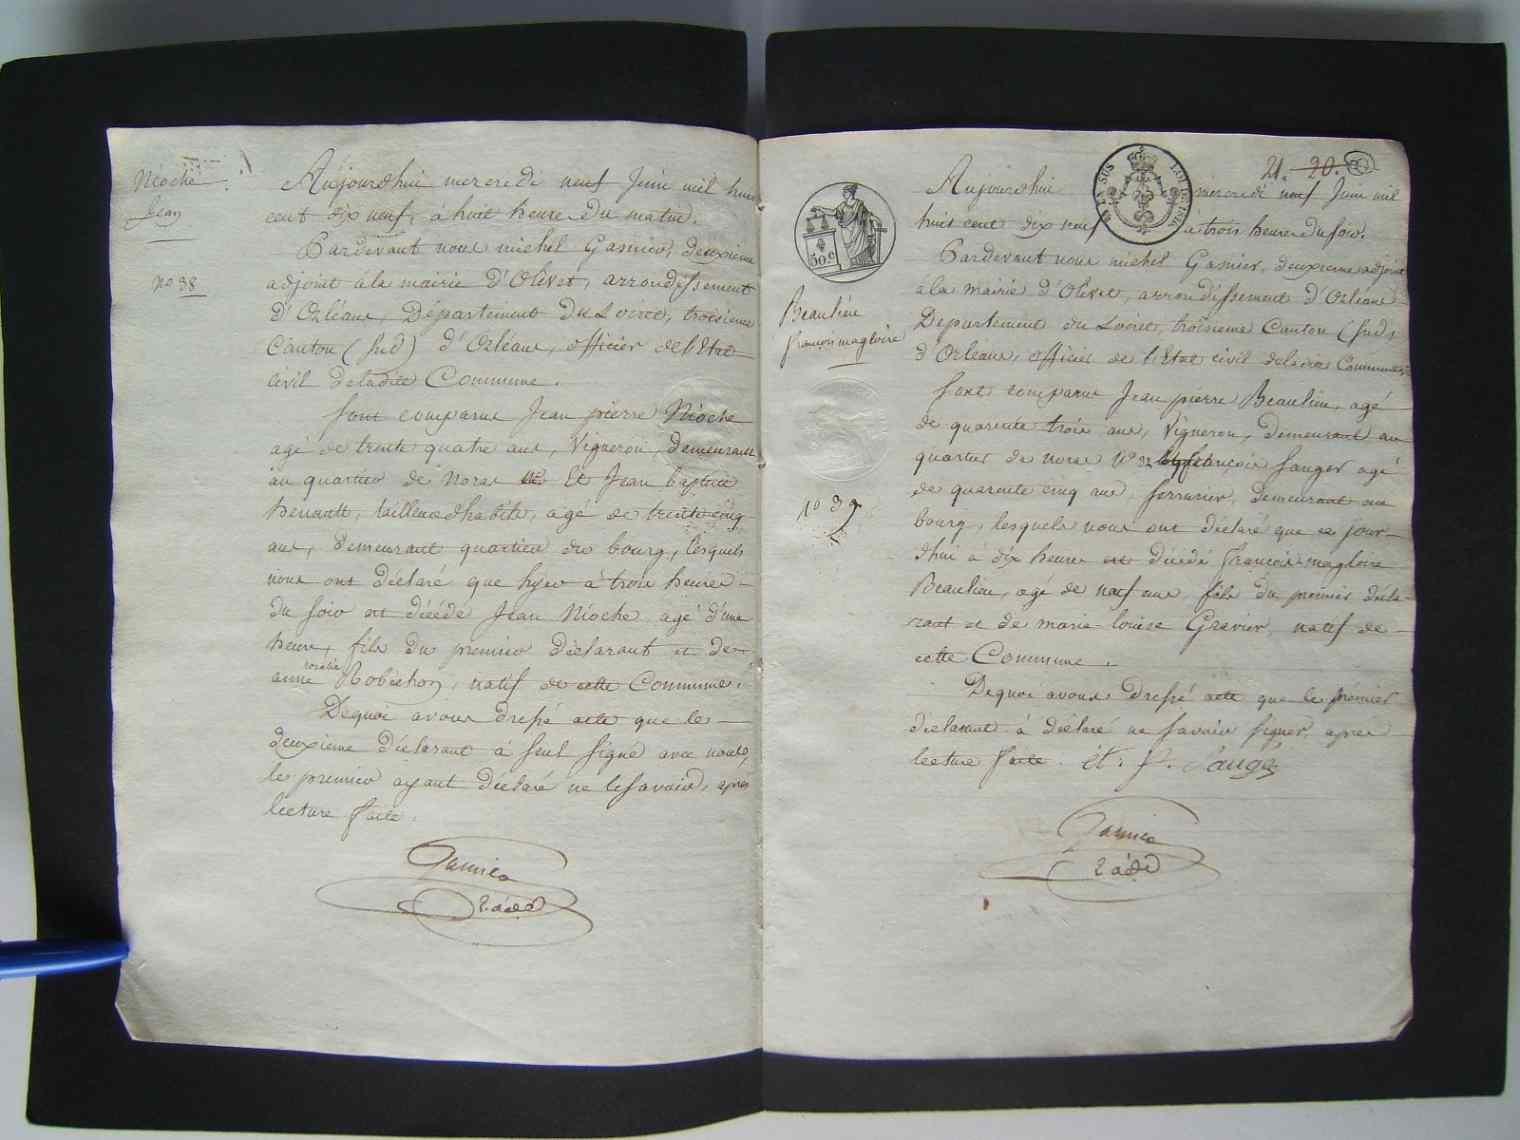 Nioche
Jean
no 38
Aujourdhui mercredi neuf Juin mil huit
cent dix neuf, a huit heure du matin.
Pardevant nous michel Gasnier, deuxieme
adjoint à la mairie d'Olivet, arrondissement
d'Orléans, Département du Loiret, troisieme
Canton (Sud) d'Orléans, officier de l'Etat
Civil de ladite Commune.
Sont comparus Jean pierre Nioche
agé de trente quatre ans, Vigneron, demeurant
au quartier de Noras Et Jean baptiste
tailleur dhabits, agé de trente cinq
ans, demeurant quartier du bourg, lesquels
nous ont déclaré que hyer à trois heures
du soir est décédé Jean Nioche, agé d'une
heure, fils du premier déclarant et de
rosalie
anne Robichon, natif de cette Commune.
Dequoi avons dressé acte que le
deuxieme déclarant à seul signé avec nous,
le premier ayant déclaré ne le savoir, apres
lecture faite.
Gasnier
2. adjt
21. 20.
50.c
Beaulieu
françois magloire
no 39
Aujourdhui mercredi neuf Juin mil
huit cent dix neuf à trois heure du soir.
Pardevant nous michel Gasnier, deuxieme adjoint
à la mairie d'Olivet, arrondissement d'Orléans
Departement du Loiret, troisieme Canton (Sud)
d'Orléans, officier de l'Etat civil de ladite Commune
Sont comparus Jean pierre Beaulieu, agé
de quarente trois ans, Vigneron, demeurant au
quartier de noras françois Sauger agé
de quarente cinq ans, serrurier, demeurant au
bourg, lesquels nous ont déclaré que ce jour-
dhui à dix heure est décédé françois magloire
Beaulieu, agé de neuf ans, fils du premier décla-
rant et de marie louise Gravier, natif de
cette Commune.
Dequoi avons dressé acte que le premier
déclarant à déclaré ne savoir signer, apres
lecture faite. et. f. Sauger
Gasnier
2 adjt